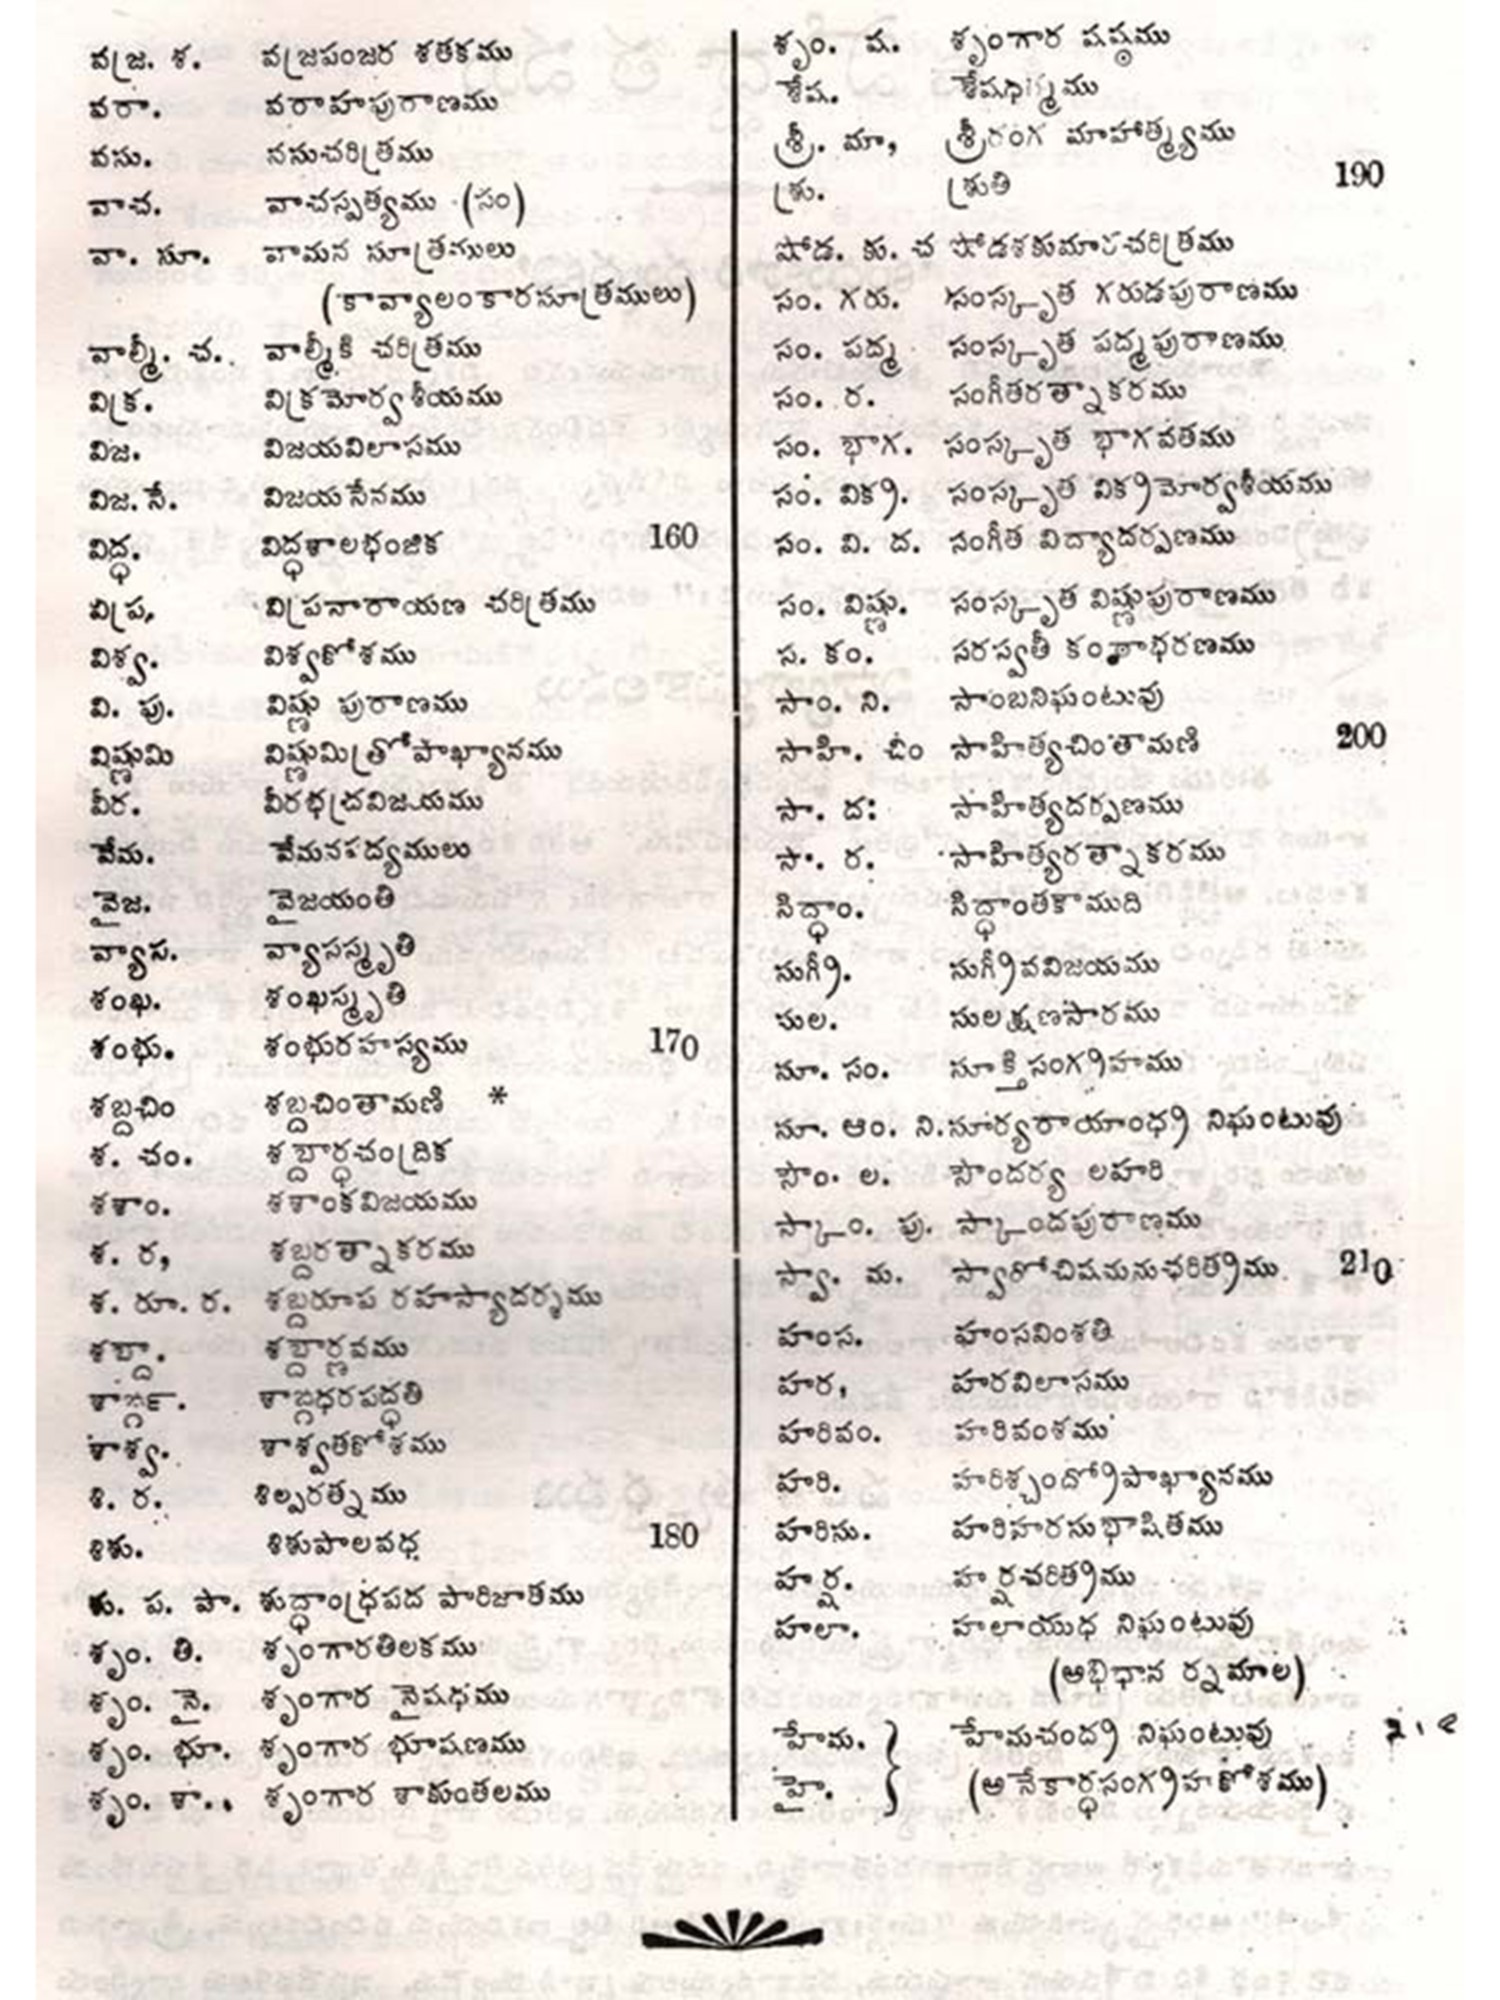 వజ్ర. శ. వజ్రపంజర శతకము
వరా. వరాహపురాణము
వసు. వసుచరిత్రము
వాచ. వాచస్పత్యము (సం)
వా. సూ. వామన సూత్రములు
(కావ్యాలంకారసూత్రములు)
వాల్మీ. చ. వాల్మీకి చరిత్రము
విక్ర. విక్రమోర్వశీయము
విజ. విజయవిలాసము
విజ. సే. విజయసేనము
విద్ధ. విద్ధశాలభంజిక 160
విప్ర, విప్రనారాయణ చరిత్రము
విశ్వ. విశ్వకోశము
వి. పు. విష్ణు పురాణము
విష్ణుమి విష్ణుమిత్రోపాఖ్యానము
వీర. వీరభద్రవిజయము
వేమ. వేమనపద్యములు
వైజ. వైజయంతి
వ్యాస. వ్యాసస్మృతి
శంఖ. శంఖస్మృతి
శంభు. శంభురహస్యము 170
శబ్దచిం శబ్దచింతామణి *
శ. చం. శబ్దార్థచంద్రిక
శశాం. శశాంకవిజయము
శ. ర, శబ్దరత్నాకరము
శ. రూ. ర. శబ్దరూప రహస్యాదర్శము
శబ్దా. శబ్దార్ణవము
శార్ఙ్గ. శార్ఙ్గధరపద్ధతి
శాశ్వ. శాశ్వతకోశము
శి. ర. శిల్పరత్నము
శిశు. శిశుపాలవధ 180
శు. ప. పా. శుద్ధాంధ్రపద పారిజాతము
శృం. తి. శృంగారతిలకము
శృం. నై. శృంగార నైషధము
శృం. భూ. శృంగార భూషణము
శృం. శా.. శృంగార శాకుంతలము
శృం. ష. శృంగార షష్ఠము
శేష. శేషధర్మము
శ్రీ. మా, శ్రీరంగ మాహాత్మ్యము
శ్రు. శ్రుతి 190
షోడ. కు. చ షోడశకుమారచరిత్రము
సం. గరు. సంస్కృత గరుడపురాణము
సం. పద్మ సంస్కృత పద్మపురాణము
సం. ర. సంగీతరత్నాకరము
సం. భాగ. సంస్కృత భాగవతము
సం. విక్ర. సంస్కృత విక్రమోర్వశీయము
సం. వి. ద. సంగీత విద్యాదర్పణము
సం. విష్ణు. సంస్కృత విష్ణుపురాణము
స. కం. సరస్వతీ కంఠాభరణము
సాం. ని. సాంబనిఘంటువు
సాహి. చిం సాహిత్యచింతామణి 200
సా. ద: సాహిత్యదర్పణము
సా. ర. సాహిత్యరత్నాకరము
సిద్ధాం. సిద్ధాంతకౌముది
సుగ్రీ. సుగ్రీవవిజయము
సుల. సులక్షణసారము
సూ. సం. సూక్తిసంగ్రహము
సూ. ఆం. ని. సూర్యరాయాంధ్ర నిఘంటువు
సౌం. ల. సౌందర్య లహరి
స్కాం. పు. స్కాందపురాణము
స్వా. మ. స్వారోచిషమనుచరిత్రము. 210
హంస. హంసవింశతి
హర, హరవిలాసము
హరివం. హరివంశము
హరి. హరిశ్చంద్రోపాఖ్యానము
హరిసు. హరిహరసుభాషితము
హర్ష. హర్షచరిత్రము
హలా. హలాయుధ నిఘంటువు
(అభిధాన ర్నమాల)
హేమ. } హేమచంద్ర నిఘంటువు
హై. (అనేకార్థసంగ్రహకోశము)